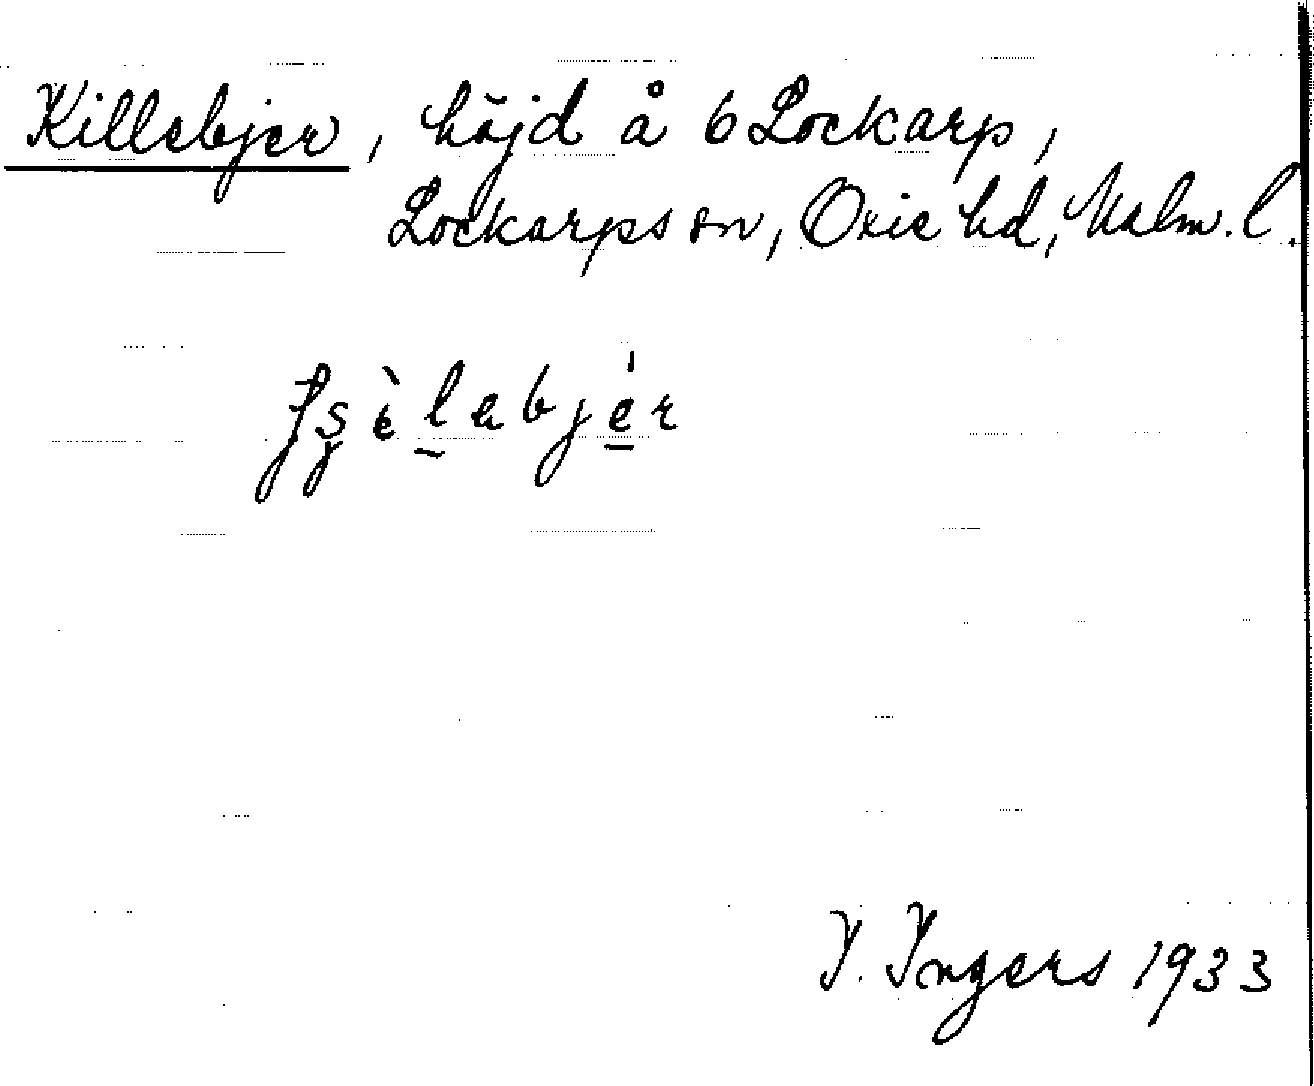 Killebjer, höjd å 6 Lockarp,
Lockarps sn, Oxie hd, Malm. l.
I. Ingers 1933